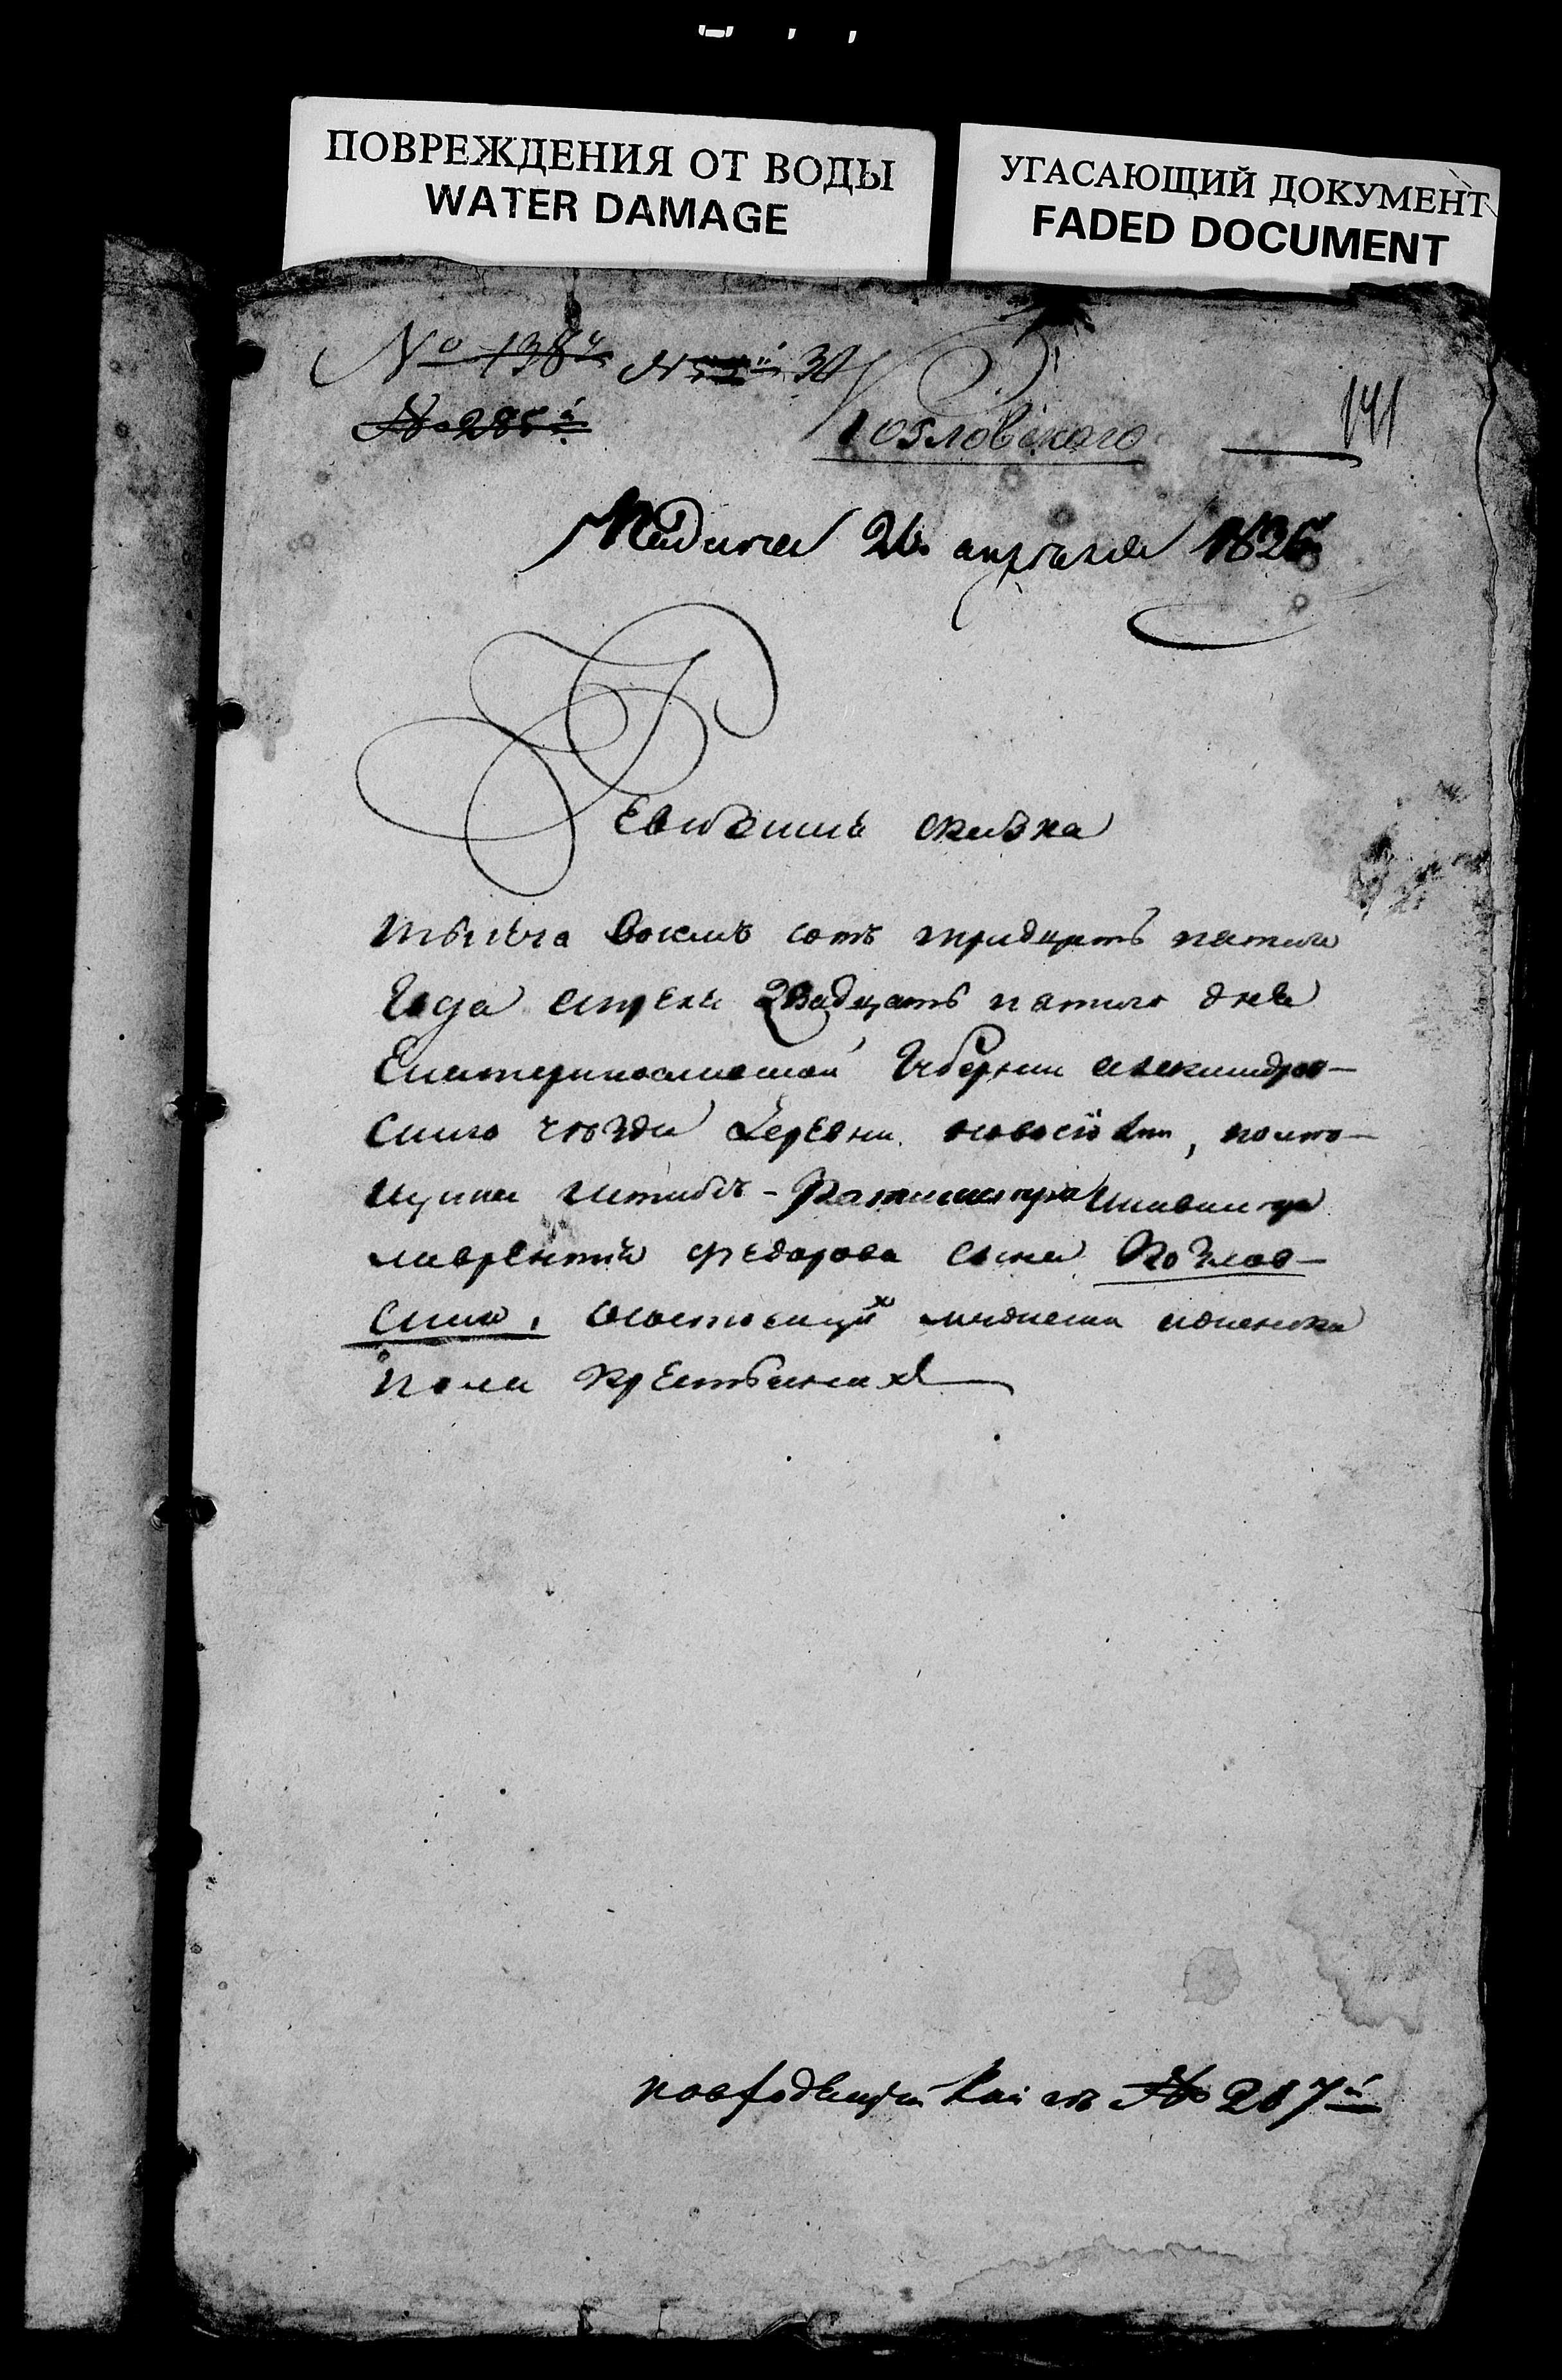 ПОВРЕЖДЕНИЯ ОТ ВОДЫ
WATER DAMAGE
УГАСАЮЩИЙ ДОКУМЕНТ
FADED DOCUMENT
№ 138й 30
№ 285й
Козловскаго
141
Подана 26 апреля 1835
Ревизская сказка
тысяча восемь сотъ тридцать пятаго
Года апреля двадцать пятаго дня
Екатеринославской Губернии александров-
скаго уезда деревни, поме-
щика штабъ-Ротмистра и кавалера
лаврентия федорова сына Козлов-
скаго, о состоящихъ мужеска и женска
пола крестьянах
по ревизии № 207й